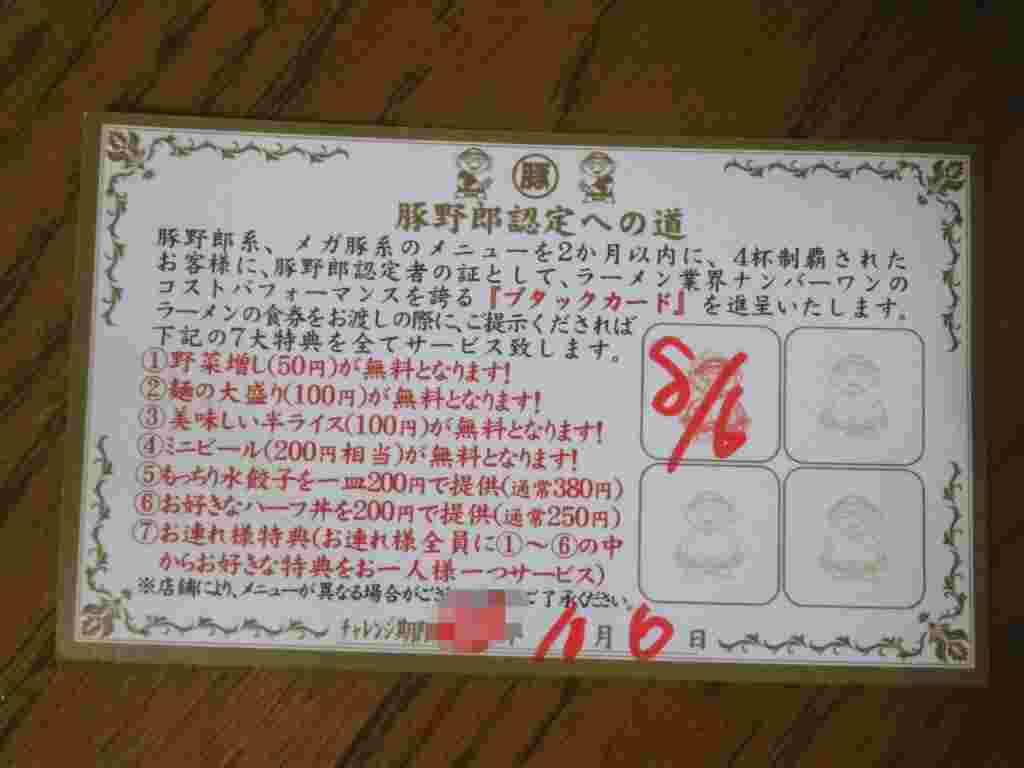 豚
豚野郎認定への道
豚野郎系、メガ豚系のメニューを2か月以内に、4杯制覇された
お客様に、豚野郎認定者の証として、ラーメン業界ナンバーワンの
コストパフォーマンスを誇る『ブタックカード』を進呈いたします。
ラーメンの食券をお渡しの際に、ご提示くだされば
下記の7大特典を全てサービス致します。
①野菜増し(50円)が無料となります!
②麺の大盛り(100円)が無料となります!
③美味しい半ライス(100円)が無料となります!
④ミニビール(200円相当)が無料となります!
⑤もっちり水餃子を一皿200円で提供(通常380円)
⑥お好きなハーフ丼を200円で提供(通常250円)
⑦お連れ様特典(お連れ様全員に①〜⑥の中
からお好きな特典をお一人様一つサービス)
※店舗により、メニューが異なる場合がござ ご了承ください。
チャレンジ期間 月 6 日